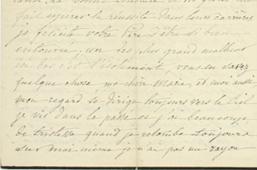 fait espérer la réussite dans leurs carrières
je félicite votre Père d'être si bien
entouré, un des plus grand malheur
est l'isolement, vous en savez
quelque chose, ma chère Marie, et moi aussi
mon regard se dirige toujours vers le Ciel
je vis dans le passé et j'ai beaucoup
de tristesse quand je retombe toujours
sur moi même je n'ai pas un rayon